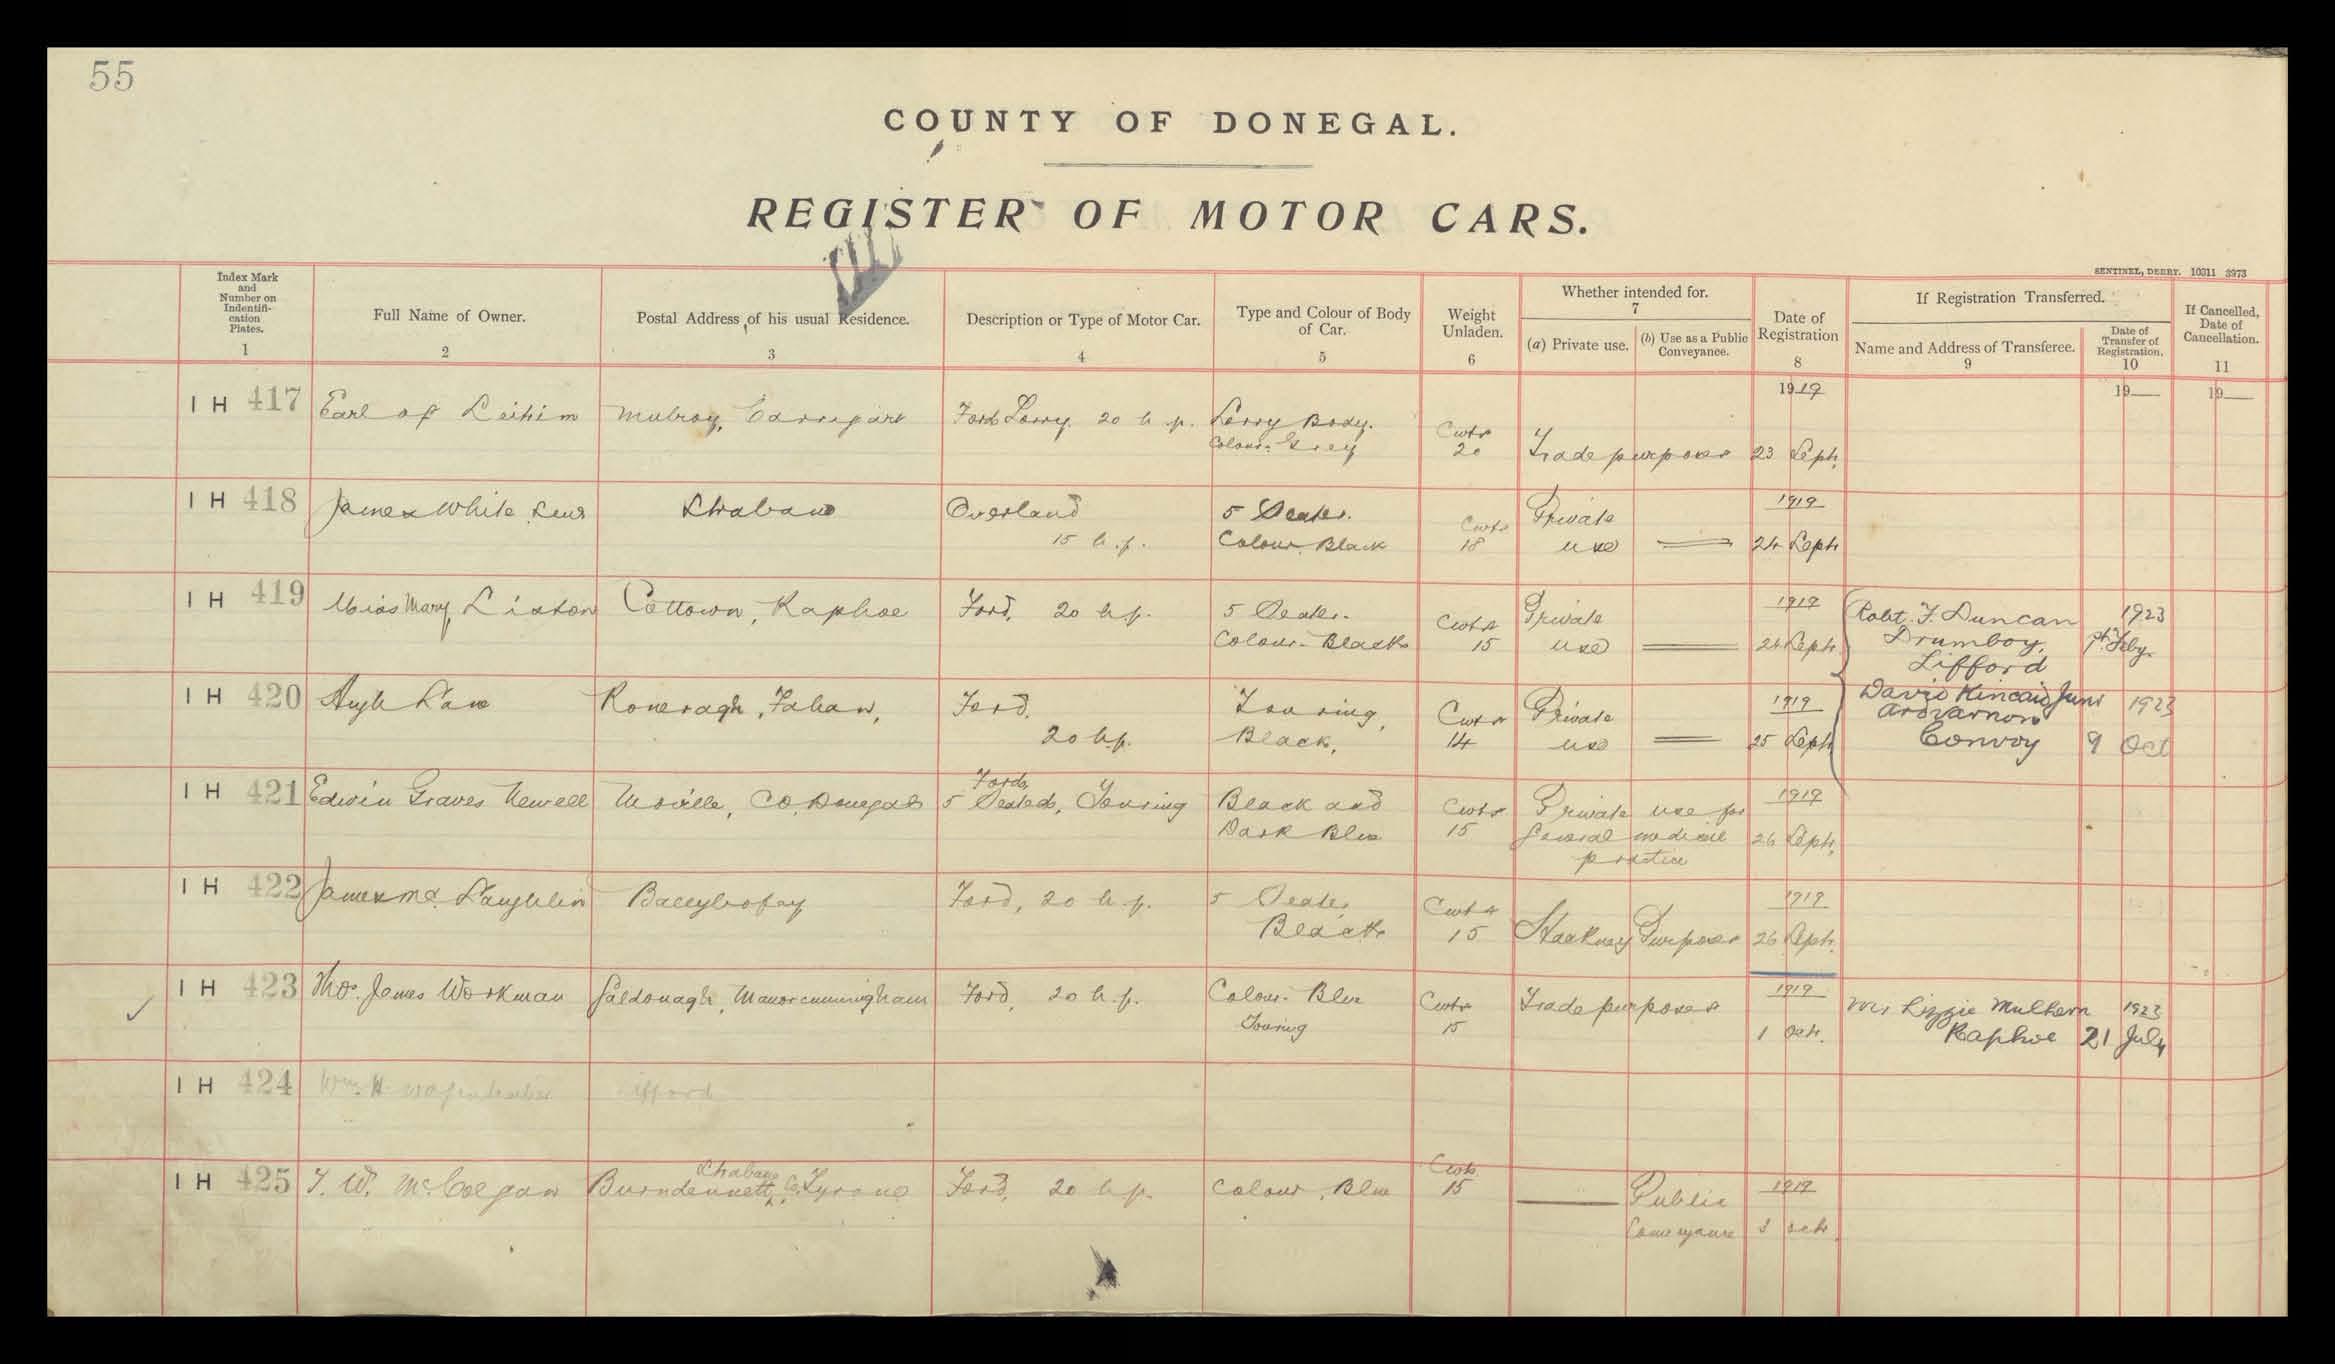 55
COUNTY OF DONEGAL.
REGISTER OF MOTOR CARS.
SENTINEL, DERRY. 10311 3973
Index Mark and Number on Indentifi-cation Plates. 1
Full Name of Owner. 2
Postal Address, of his usual Residence. 3
Description or Type of Motor Car. 4
Type and Colour of Body of Car. 5
Weight Unladen. 6
Whether intended for. 7
(a) Private use.
(b) Use as a Public Conveyance.
Date of Registration 8
If Registration Transferred.
Name and Address of Transferee. 9
Date of Transfer of Registration. 10
If Cancelled, Date of Cancellation. 11
1919 19 19
IH 417 Earl of Leitrim Mulroy, Carrigart Ford Lorry 20 h.p. Lorry Body.
Colour: Grey Cwts 20 Trade purposes 23 Sept.
IH 418 James White Senr Strabane Overland 5 Seater. Private 1919
15 h.p. Colour Black Cwts 18 use 24 Sept
IH 419 Miss Mary Liston Cottown, Raphoe Ford, 20 h.p. 5 Seater. Private 1919 Robt. F. Duncan 1923
Colour. Black Cwts 15 use 24 Sept. Drumboy, 1st Feby.
Lifford
IH 420 Hugh Lane Roneragh, Fahan, Ford. Touring, Private 1919 David Kincaid Junr 1923
Ardvarnon
20 h.p. Black, Cwts 14 use 25 Sept Convoy 9 Oct
IH 421 Edwin Graves Newell Moville, Co. Donegal Ford,
5 Seated, Touring Black and Cwts Private use for 1919
Dark Blue 15 General medical 26 Sept.
practice
IH 422 James Mc. Laughlin Ballybofey Ford, 20 h.p. 5 Seater, Cwts 1919
Black 15 Hackney Purposes 26 Sept.
IH 423 Thos. James Workman Galdonagh, Manorcunningham Ford, 20 h.p. Colour. Blue Cwts Trade purposes 1919 Mrs Lizzie Mulhern 1923
Touring 15 1 Oct. Raphoe 21 July
IH 424 Wm. H.
IH 425 T. W. McColgan Burndennett, Strabane Co. Tyrone Ford, 20 h.p. Colour, Blue Cwts 15 Public 1919
Conveyance 3 Oct.